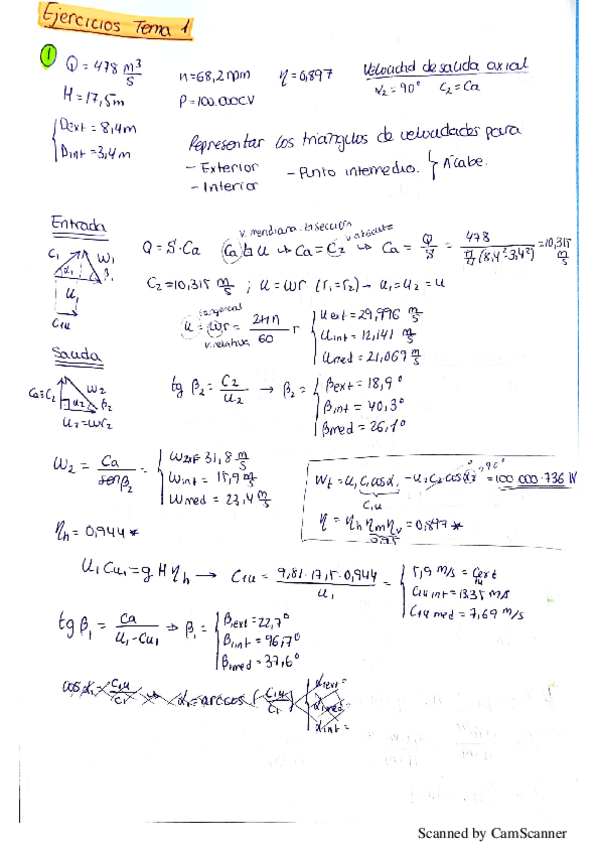 Ejercicios Tema 1
① Q = 478 m³/s   n = 68,2 rpm   η = 0,897   Velocidad de salida axial
H = 17,5m   P = 100.000CV   α₂ = 90°   C₂ = Ca
{ Dext = 8,4m
Dint = 3,4m
Representar los triángulos de velocidades para
- Exterior   - Punto intermedio. } Álabe.
- Interior
Entrada
C₁ W₁ α₁ β₁ U₁ C₁u
v. meridiana v. absoluta
Q = S · Ca   Ca ⊥ U → Ca = C₂ → Ca = Q/S = 478 / (π/4 (8,4² - 3,4²)) = 10,315 m/s
C₂ = 10,315 m/s ; u = ωr (r₁ = r₂) → u₁ = u₂ = u
u = ωr = 2πn/60 r { Uext = 29,996 m/s
Uint = 12,141 m/s
Umed = 21,069 m/s
v. relativa
Salida
Ca = C₂ W₂ α₂ β₂
U₂ = ωr₂
tg β₂ = C₂/U₂ → β₂ = { βext = 18,9°
βint = 40,3°
βmed = 26,1°
W₂ = Ca / senβ₂ = { W2ext = 31,8 m/s
Wint = 15,9 m/s
Wmed = 23,4 m/s
Wt = U₁ C₁ cosα₁ - U₂ C₂ cosα₂ = 100 000 · 736 W
90°
C₁u
η = ηh ηm ηv = 0,897 *
0,95
ηh = 0,944 *
U₁ Cu₁ = g H ηh → C₁u = 9,81 · 17,5 · 0,944 / U₁ = { 5,9 m/s = C1u ext
C₁u int = 13,35 m/s
C₁u med = 7,69 m/s
tg β₁ = Ca / (U₁ - Cu₁) ⇒ β₁ = { βext = 22,7°
βint = 96,7°
βmed = 37,6°
cos α₁ = C₁u/C₁ → α₁ = arccos (C₁u/C₁) { α₁ext =
α₁med =
α₁int =
Scanned by CamScanner